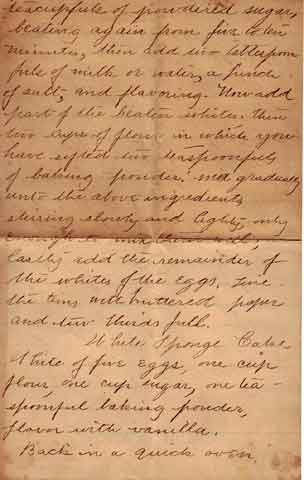 teacupfuls of powdered sugar,
beating again from five to ten
minutes, then add two tablespoon
fuls of milk or water, a pinch
of salt, and flavoring. Now add
part of the beaten whites. then
two cups of flour in which you
have sifted two teaspoonfuls
of baking powder. mix gradually
into the above ingredients
stirring slowly and lightly, only
enough to mix them well,
lastly add the remainder of
the whites of the eggs. Line
the tins with buttered paper
and two thirds full.
White Sponge Cake
White of five eggs, one cup
flour, one cup sugar, one tea-
spoonful baking powder,
flavor with vanilla.
Back in a quick oven.